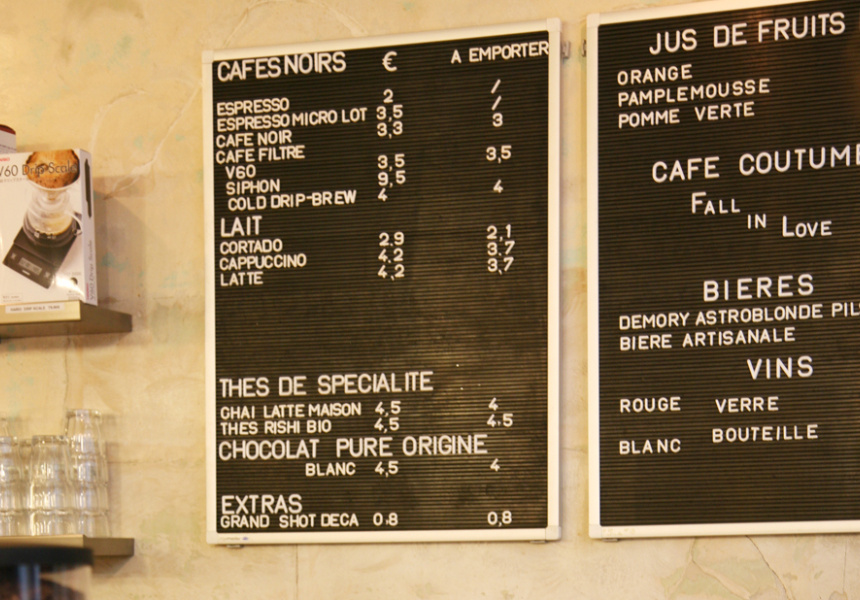 CAFES NOIRS € A EMPORTER
ESPRESSO 2 /
ESPRESSO MICRO LOT 3,5 /
CAFE NOIR 3,3 3
CAFE FILTRE
V60 3,5 3,5
SIPHON 9,5
COLD DRIP-BREW 4 4
LAIT
CORTADO 2.9 2,1
CAPPUCCINO 4.2 3.7
LATTE 4,2 3,7
THES DE SPECIALITE
CHAI LATTE MAISON 4,5 4
THES RISHI BIO 4,5 4.5
CHOCOLAT PURE ORIGINE
BLANC 4,5 4
EXTRAS
GRAND SHOT DECA 0.8 0,8
JUS DE FRUITS
ORANGE
PAMPLEMOUSSE
POMME VERTE
CAFE COUTUME
FALL
IN
LOVE
BIERES
DEMORY ASTROBLONDE PIL
BIERE ARTISANALE
VINS
ROUGE VERRE
BLANC BOUTEILLE
V60 Drip Scale